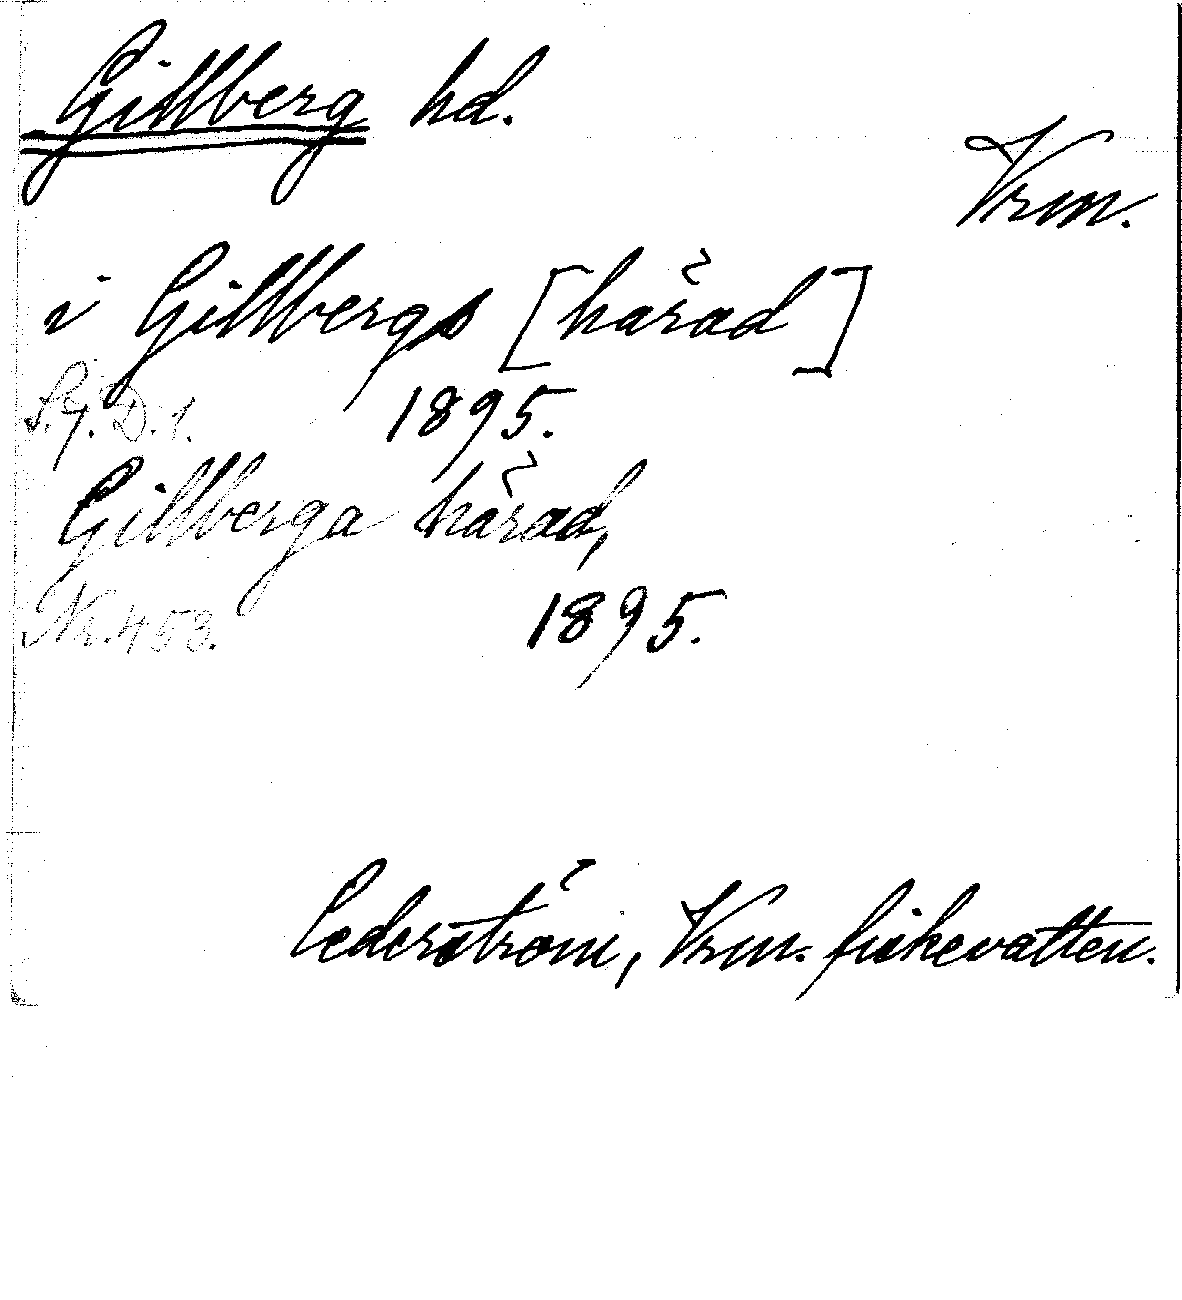 Gillberg hd.
Vrm.
i Gillbergs [härad]
S. 7. D. 1. 1895.
Gillberga härad,
Nr. 453. 1895.
Cederström, Vrm. fiskevatten.